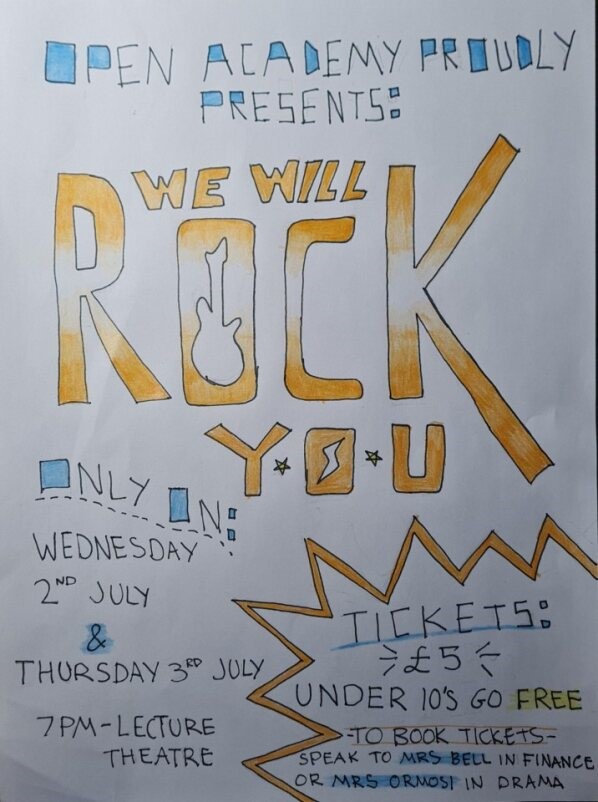 OPEN ACADEMY PROUDLY
PRESENTS:
WE WILL
ROCK
YOU
ONLY ON:
WEDNESDAY
2ND JULY
&
THURSDAY 3RD JULY
7PM-LECTURE
THEATRE
TICKETS:
£5
UNDER 10'S GO FREE
-TO BOOK TICKETS-
SPEAK TO MRS BELL IN FINANCE
OR MRS ORMOSI IN DRAMA